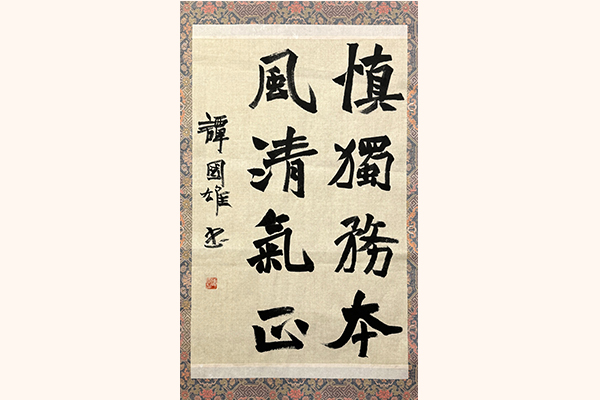 慎獨務本
風清氣正
譚國雄書